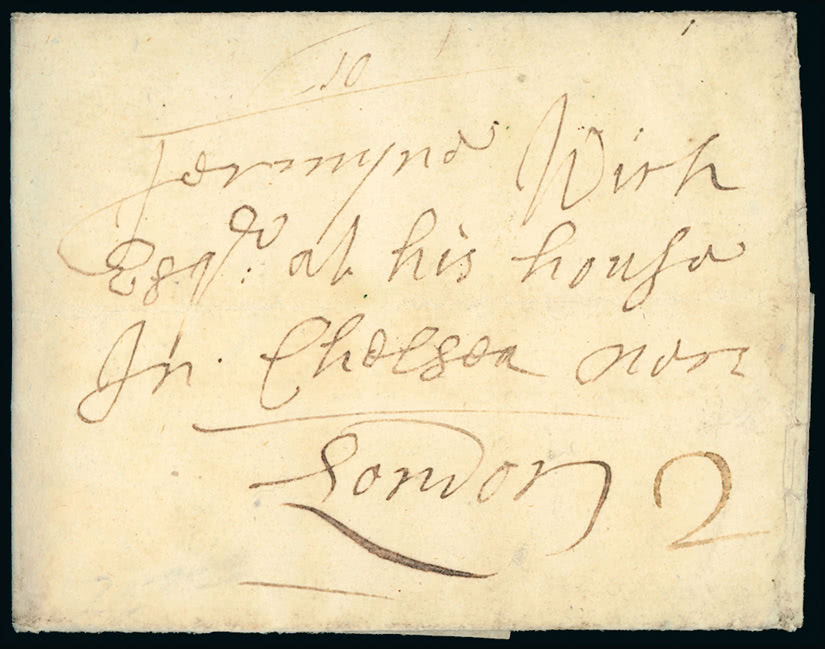 To
Jermyne Wich
Esqr: at his house
In Chelsea near
London 2